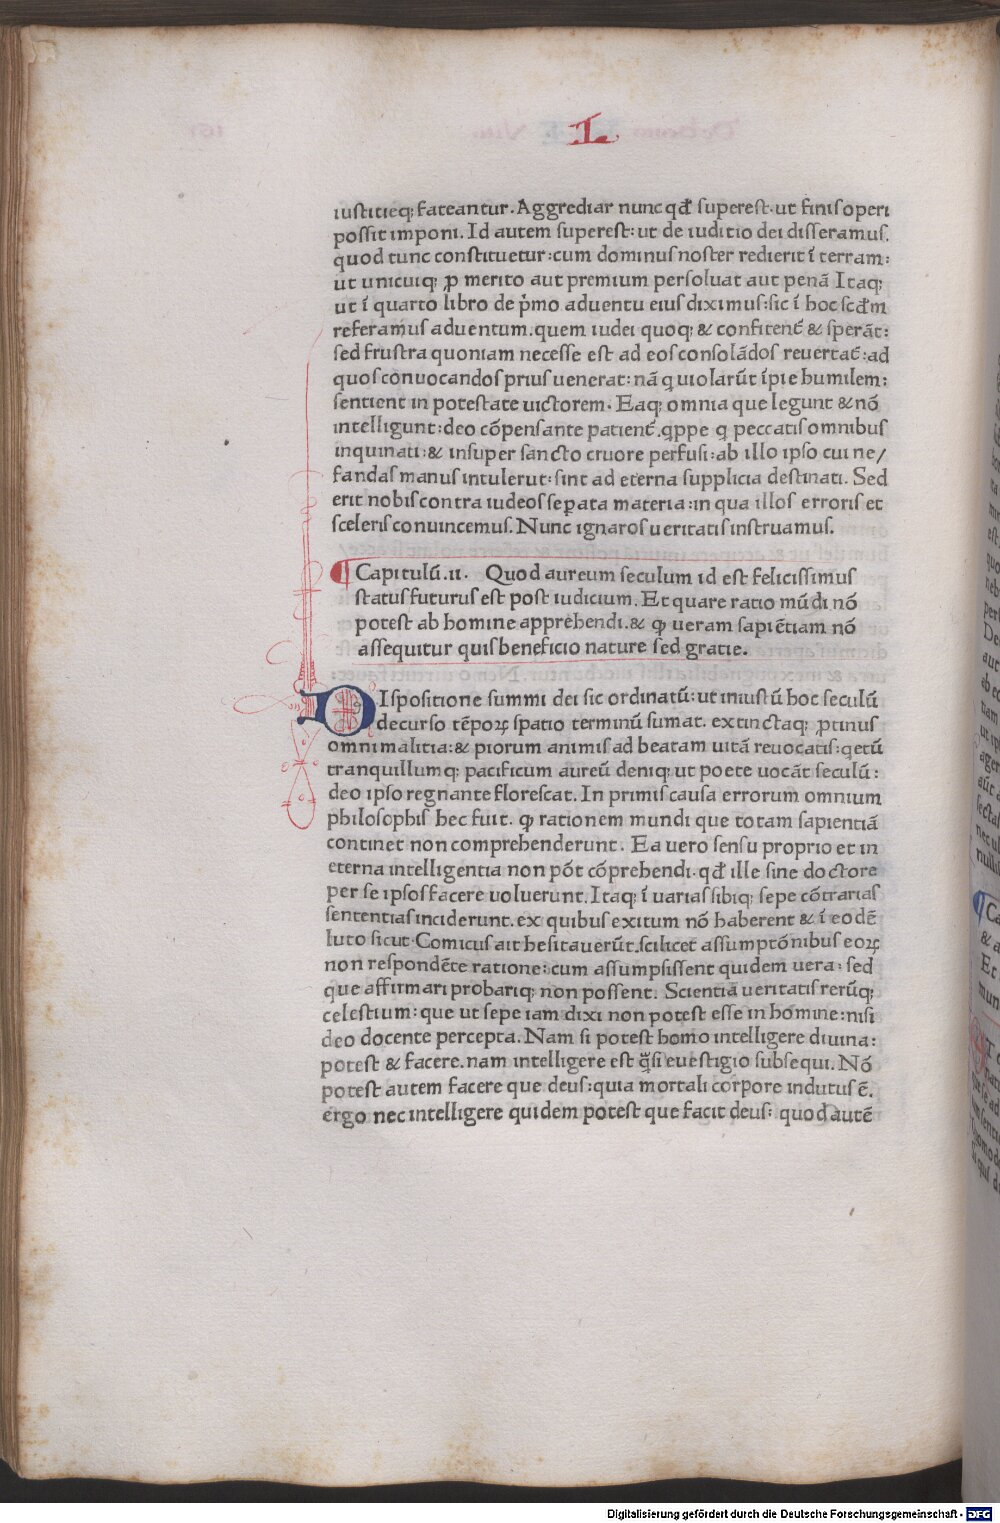 L
iustitieq; fateantur. Aggrediar nunc qđ superest. ut finis operi
possit imponi. Id autem superest: ut de iuditio dei disseramus.
quod tunc constituetur: cum dominus noster redierit ī terram:
ut unicuiq; ꝓ merito aut premium persoluat aut penā Itaq;
ut ī quarto libro de p̄mo aduentu eius diximus: sic ī hoc scđm
referamus aduentum. quem iudei quoq; & confitenť & sperāt:
sed frustra quoniam necesse est ad eos consolādos reuertať: ad
quos conuocandos prius uenerat: nā q uiolarūt īpie humilem:
sentient in potestate uictorem. Eaq; omnia que legunt & nō
intelligunt: deo cōpensante patienť. q̈ppe q peccatis omnibus
inquinati: & insuper sancto cruore perfusi: ab illo ipso cui ne/
fandas manus intulerūt: sint ad eterna supplicia destinati. Sed
erit nobis contra iudeos seꝑata materia: in qua illos erroris et
sceleris conuincemus. Nunc ignaros ueritatis instruamus.
Capitulū. II. Quod aureum seculum id est felicissimus
status futurus est post iudicium. Et quare ratio mūdi nō
potest ab homine apprehendi. & ꝙ ueram sapiētiam nō
assequitur quis beneficio nature sed gratie.
DIspositione summi dei sic ordinatū: ut iniustū hoc seculū
decurso tēpoꝝ spatio terminū sumat. extinctaq; ꝓtinus
omni malitia: & piorum animis ad beatam uitā reuocatis: qetū
tranquillumq; pacificum aureū deniq; ut poete uocāt seculū:
deo ipso regnante florescat. In primis causa errorum omnium
philosophis hec fuit. ꝙ rationem mundi que totam sapientiā
continet non comprehenderunt. Ea uero sensu proprio et in
eterna intelligentia non pōt cōprehendi. qđ ille sine doctore
per se ipsos facere uoluerunt. Itaq; ī uarias sibiq; sepe cōtrarias
sententias inciderunt. ex quibus exitum nō haberent & ī eodē
luto sicut Comicus ait hesitauerūt. scilicet assumptōnibus eoꝝ
non respondēte ratione: cum assumpsissent quidem uera: sed
que affirmari probariq; non possent. Scientiā ueritatis rerūq;
celestium: que ut sepe iam dixi non potest esse in homine: nisi
deo docente percepta. Nam si potest homo intelligere diuina:
potest & facere. nam intelligere est q̄si e uestigio subsequi. Nō
potest autem facere que deus: quia mortali corpore indutus ē.
ergo nec intelligere quidem potest que facit deus: quod autē
Digitalisierung gefördert durch die Deutsche Forschungsgemeinschaft - DFG